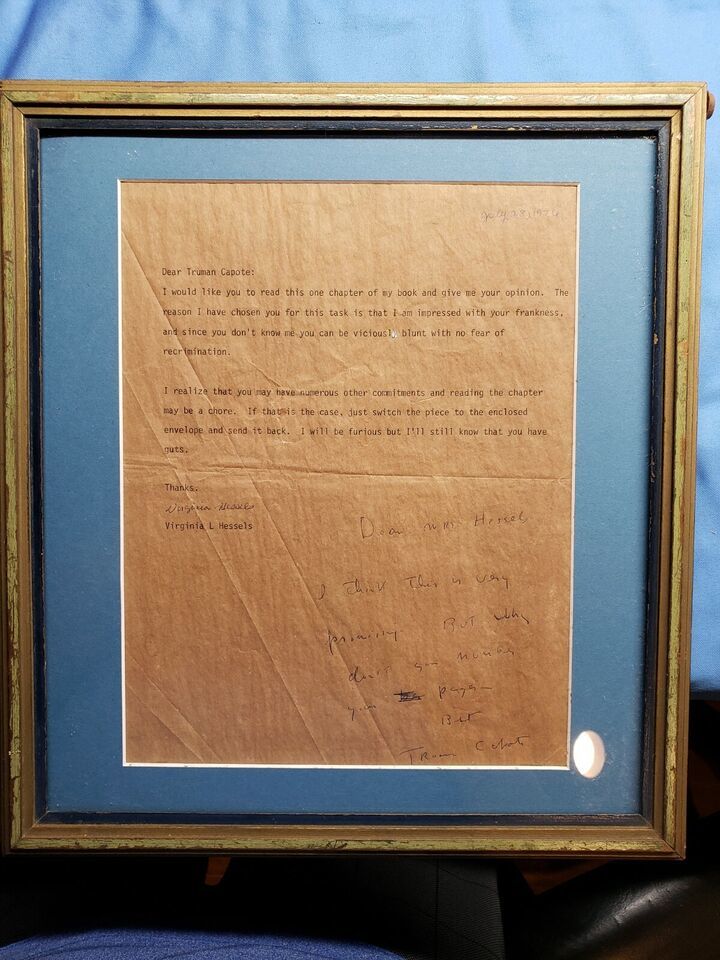 July 28, 1976
Dear Truman Capote:
I would like you to read this one chapter of my book and give me your opinion. The
reason I have chosen you for this task is that I am impressed with your frankness,
and since you don't know me you can be viciously blunt with no fear of
recrimination.
I realize that you may have numerous other commitments and reading the chapter
may be a chore. If that is the case, just switch the piece to the enclosed
envelope and send it back. I will be furious but I'll still know that you have
guts.
Thanks.
Virginia Hessels
Virginia L Hessels
Dear Mrs Hessels
I think this is very
promising. But why
don't you number
your pages
Best
Truman Capote